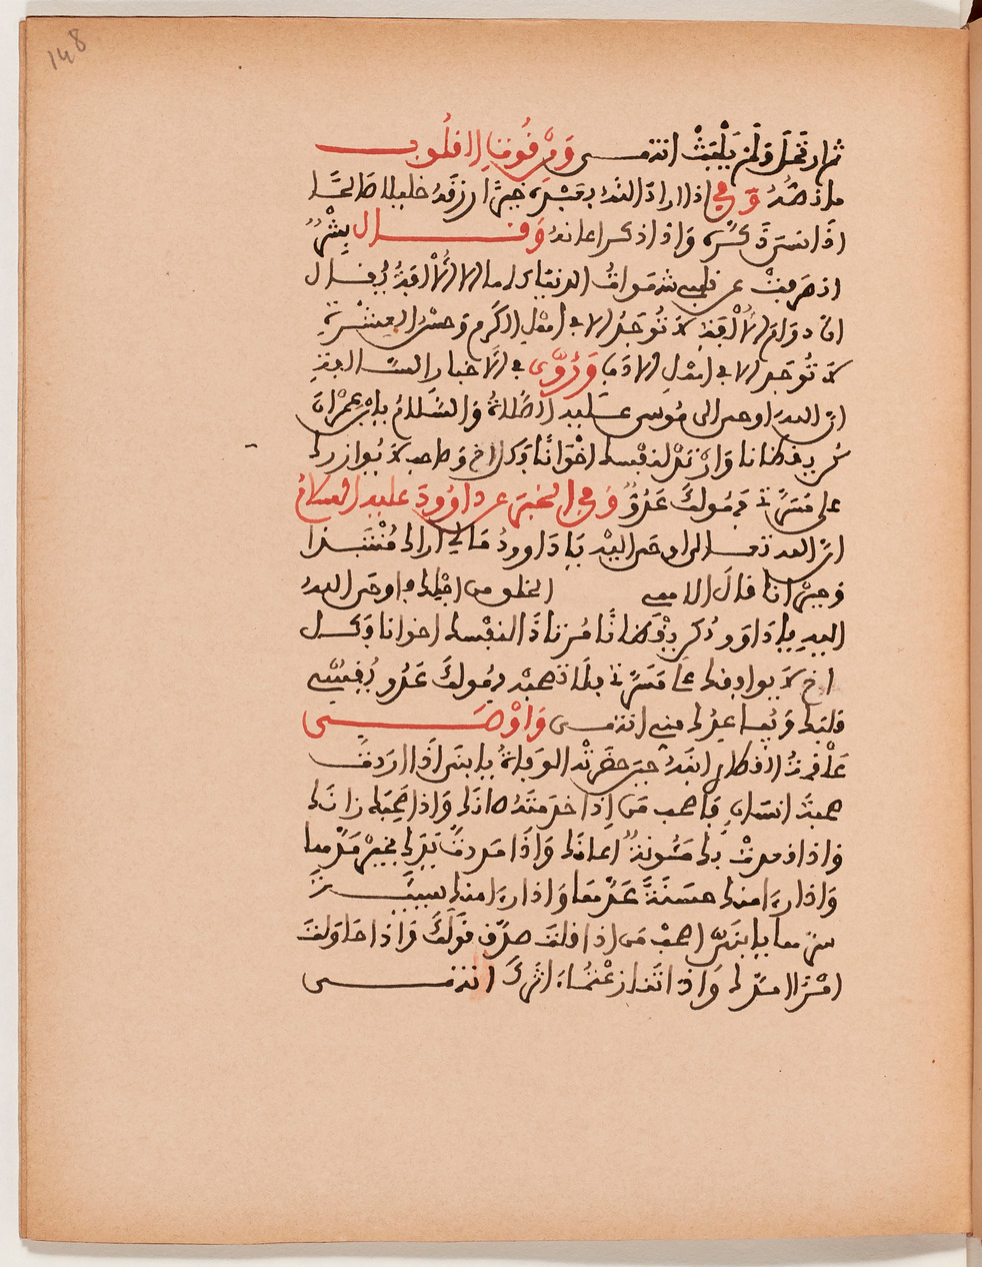 148
ثم ارتحل ولم يلبث انتهى ومن قوت القلوب
ما نصه وفي اذا اراد الله بعبده خيرا رزقه خليلا صالحا
اذا نسي ذكره واذا ذكر اعانه وقال بشر
اذهبت عن قلبي شهوات الدنيا كلها الا الألفة يقال
ان دوام الألفة لا توجد الا في اهل الكرم وحسن العشرة
لا توجد الا في اهل الادب وروي في الاخبار السالفة
ان الله اوحى الى موسى عليه الصلاة والسلام يابن عمران
كن يقظانا وارتد لنفسك اخوانا وكل اخ وصاحب لا يوازرك
على مسرتي فهو لك عدو وفي الخبر عن داوود عليه السلام
ان الله تعالى اوحى اليه يا داوود مالي اراك منتبذا
وحيدانا قال الاهي الخلق من اجلك فاوحى الله
اليه يا داوود كن يقظانا مرتادا لنفسك اخوانا وكل
اخ لا يوافقك على مسرتي فلا تصحبه فهو لك عدو يقسي
قلبك ويباعدك مني انتهى واوصى
علقمة العطار ابنه حين حضرته الوفاة يا بني اذا اردت
صحبة انسان فاصحب من اذا خدمته صانك واذا صحبته زانك
واذا قعدت بك مئونة اعانك واذا مددت يدك بخير مدها
واذا رءا منك حسنة عدها واذا رءا منك سيئة
سدها يا بني اصحب من اذا قلت صدق قولك واذا حاولت
امرا امدك واذا تنازعتما ءاثرك انتهى